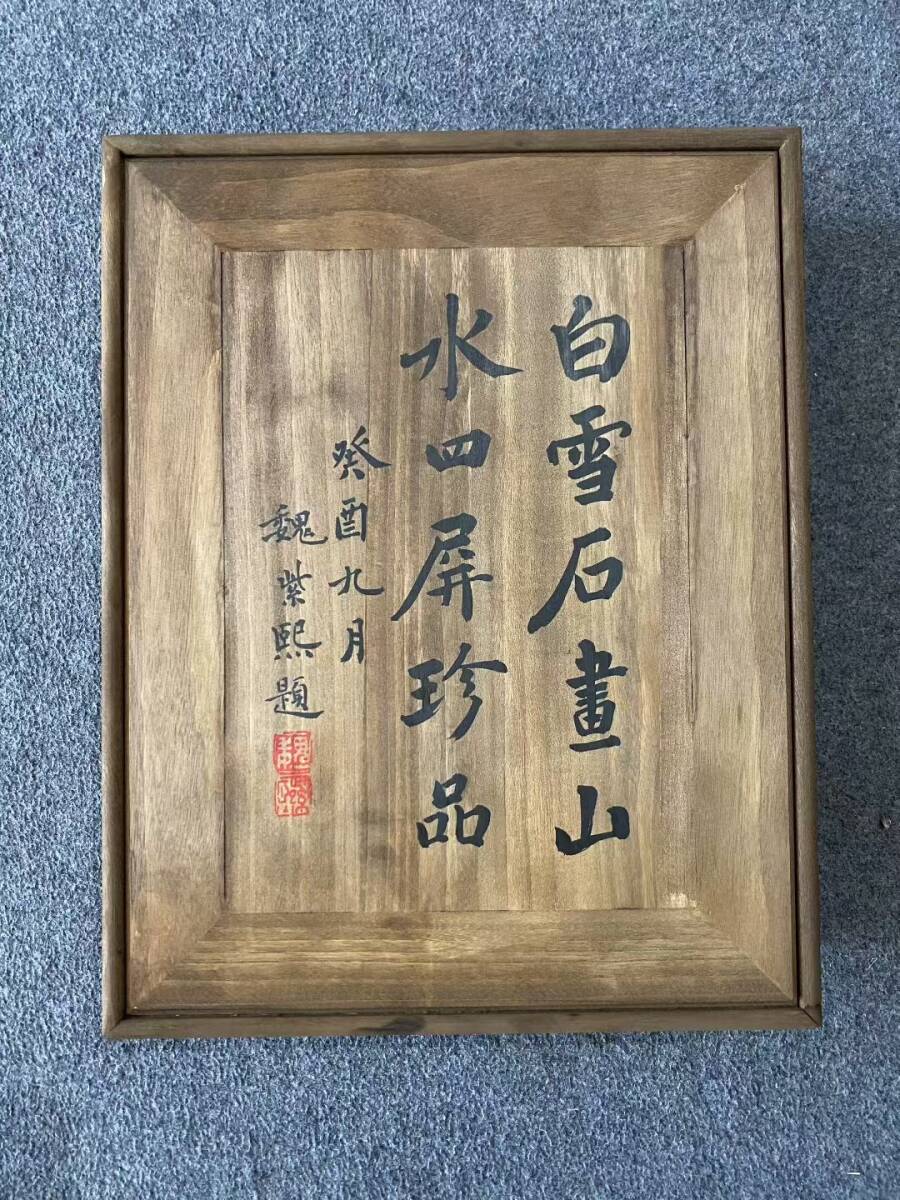 白雪石畫山
水四屏珍品
癸酉九月
魏紫熙題